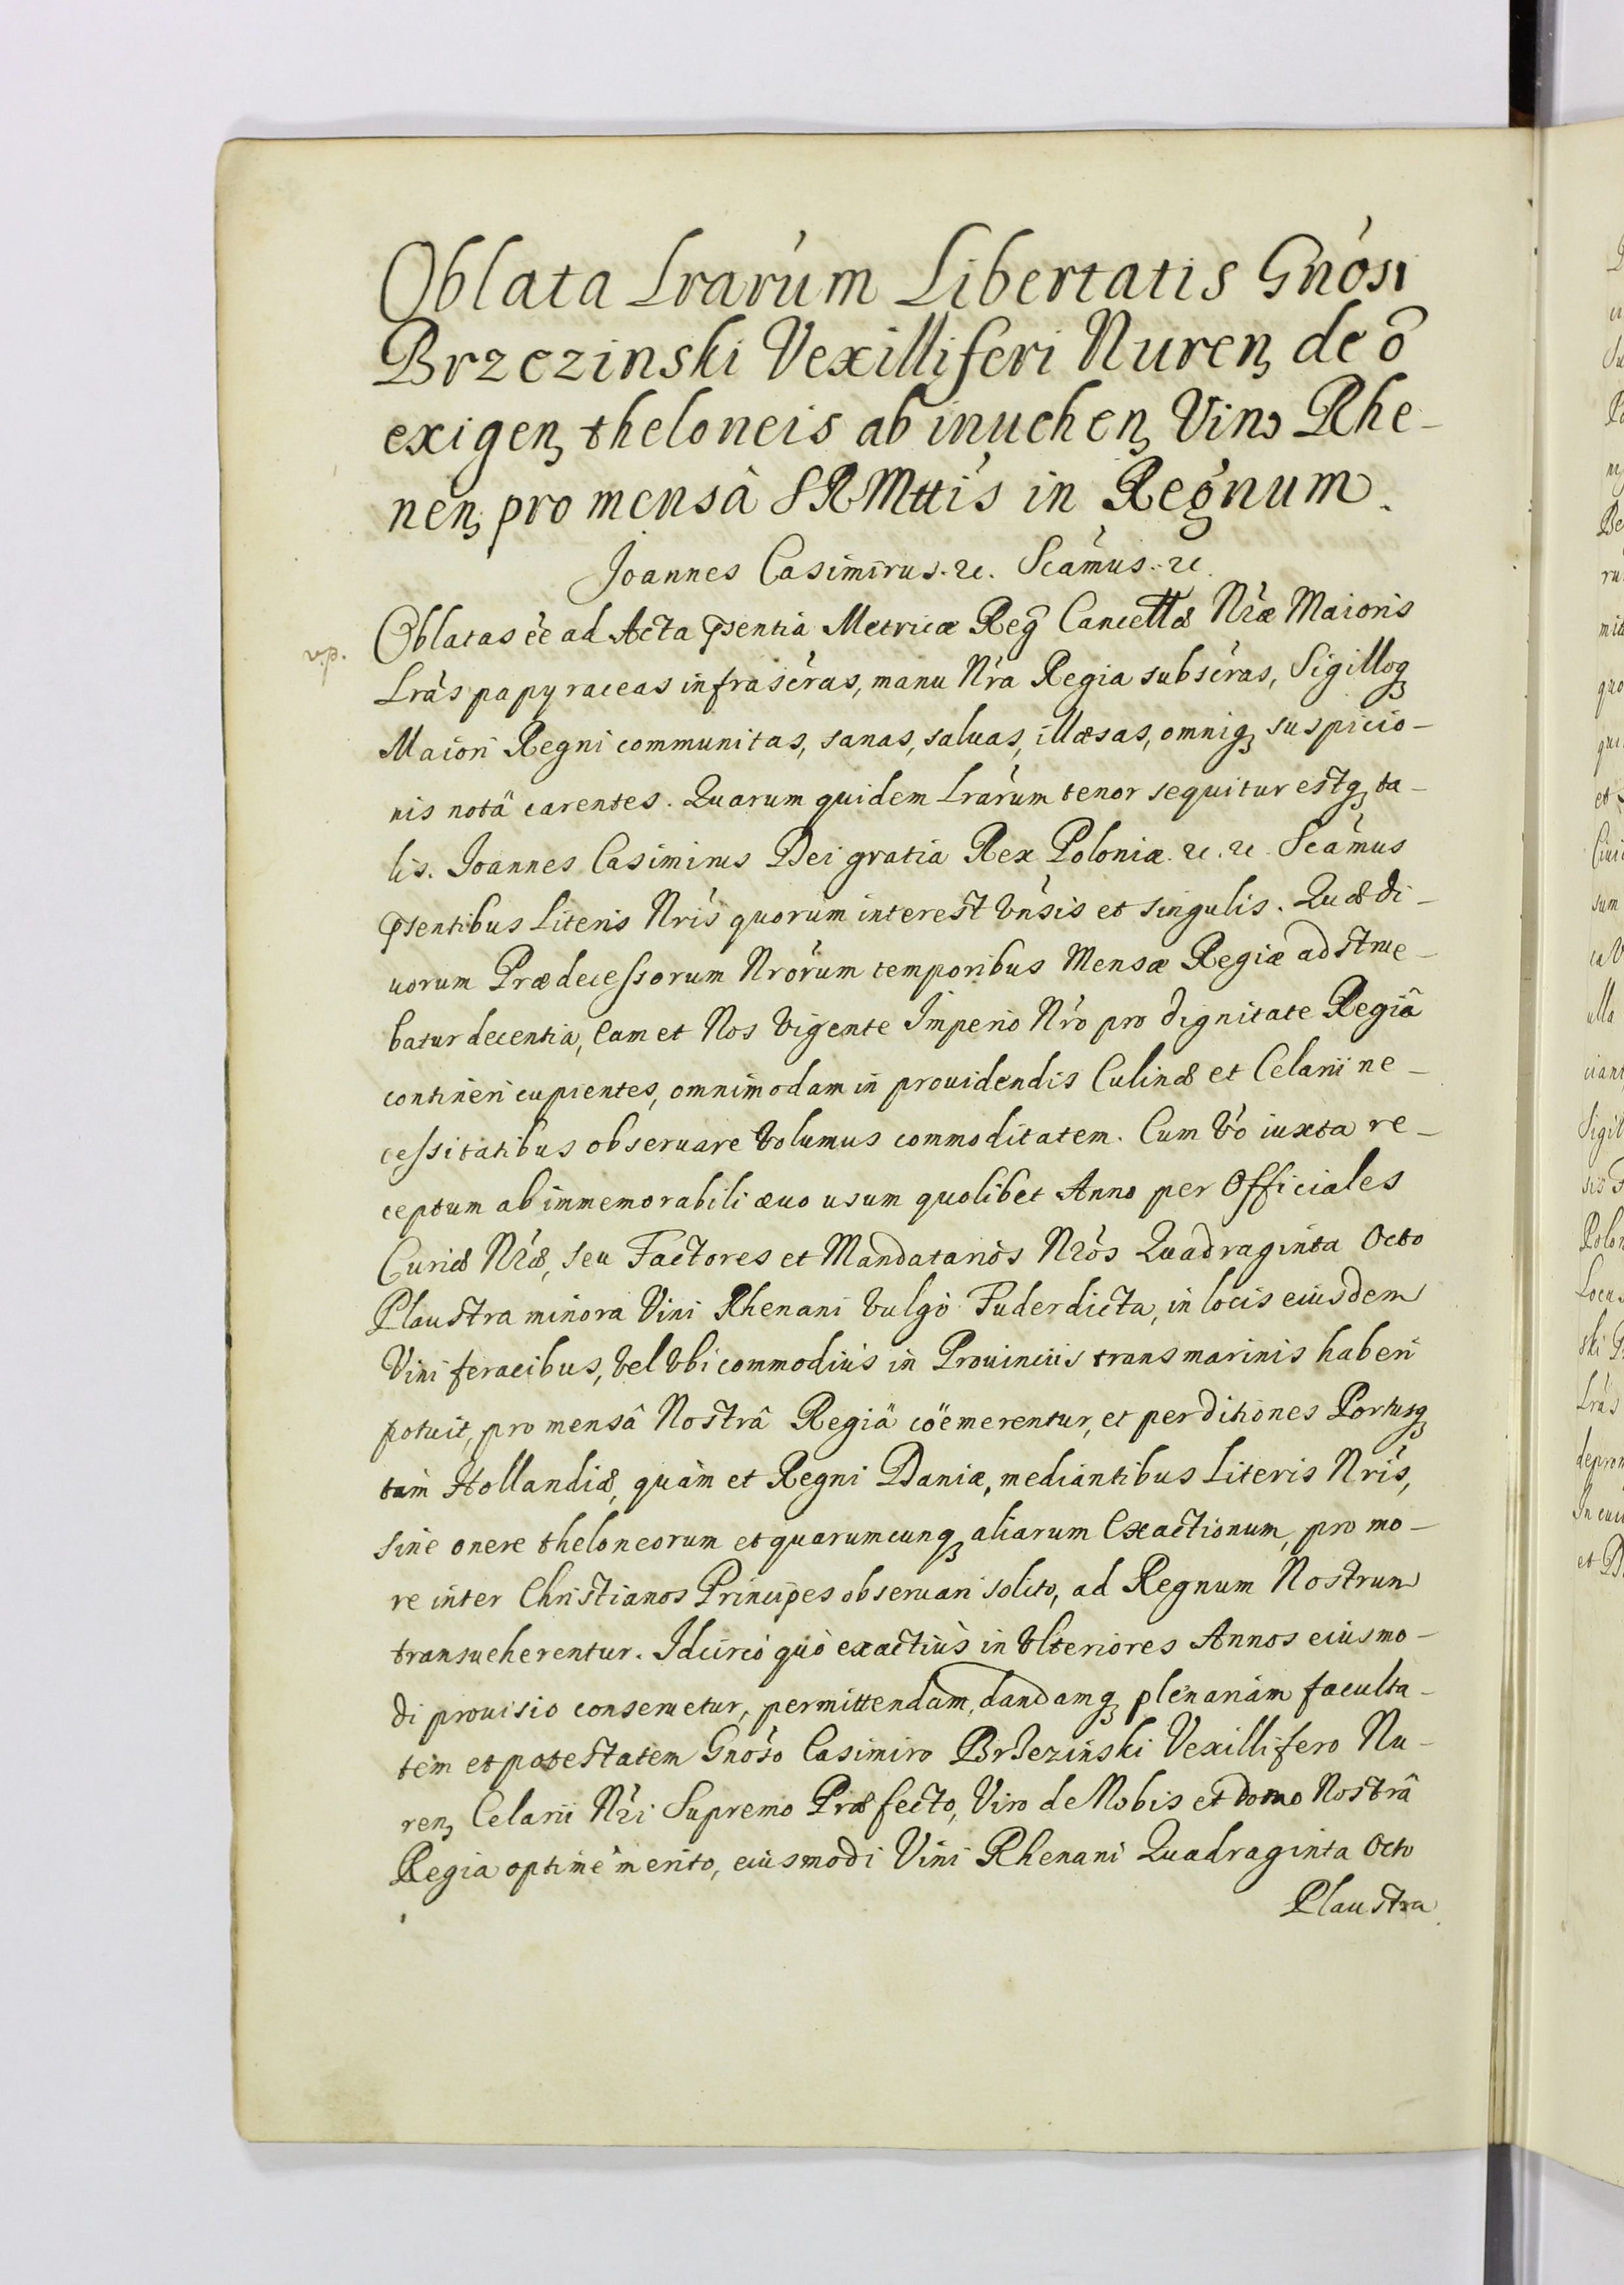 Oblata Lrarum Libertatis Gnosi
Brzezinski Vexilliferi Nuren, de õ
exigen, theloneis ab inuehen, Vino Rhe-
nen, pro mensâ SRMttis in Regnum.
Joannes Casimirus. &c. Scamus. &c.
v.p.
Oblatas ee ad Acta pntia Metricæ Reg Cancellæ Nræ Maioris
Lras papyraceas infrascras, manu Nra Regia subscras, Sigilloq
Maiori Regni communitas, sanas, saluas, illæsas, omniq, suspicio-
nis notâ carentes. Quarum quidem Lrarum tenor sequitur estq, ta-
lis. Joannes Casimirus Dei gratia Rex Poloniæ. &c. &c. Scamus
psentibus Literis Nris quorum interest Vnsis et singulis. Quæ di-
uorum Prædecessorum Nrorum temporibus Mensæ Regiæ adstrue-
batur decentia, Eam et Nos Vigente Imperio Nro pro dignitate Regiâ
contineri cupientes, omnimodam in prouidendis Culinæ et Celarii ne-
cessitatibus obseruare Volumus commoditatem. Cum Vo iuxta re-
ceptum ab immemorabili æuo usum quolibet Anno per Officiales
Curiæ Nræ, seu Factores et Mandatarios Nros Quadraginta Octo
Plaustra minora Vini Rhenani Vulgò Fuder dicta, in locis eiusdem
Vini feracibus, Vel Vbi commodius in Prouinciis transmarinis haberi
potuit, pro mensâ Nostrâ Regiâ cöemerentur, et per ditiones Portusq
tam Hollandiæ, quàm et Regni Daniæ, mediantibus Literis Nris,
sine onere theloneorum et quarumcunq, aliarum Exactionum, pro mo-
re inter Christianos Principes obseruari solito, ad Regnum Nostrum
transueherentur. Idcircò quò exactiùs in Vlteriores Annos eiusmo-
di prouisio conseruetur, permittendam, dandamq, plenariam faculta-
tem et potestatem Gnoso Casimiro Brzezinski Vexillifero Nu-
ren, Celarii Nri Supremo Præfecto, Viro de Nobis et domo Nostrâ
Regia optimè merito, eiusmodi Vini Rhenani Quadraginta Octo
Plaustra